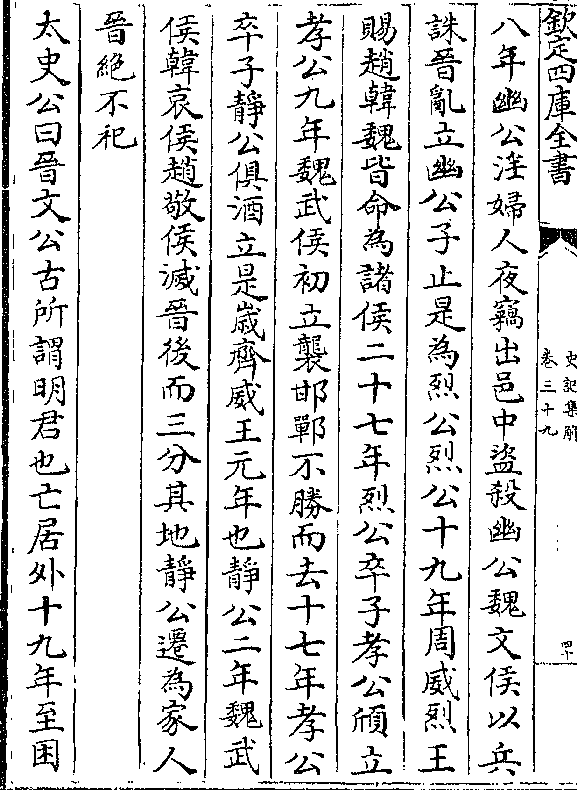 欽定四庫全書
史記集解
卷三十九
四十
八年幽公淫婦人夜竊出邑中盜殺幽公魏文侯以兵
誅晉亂立幽公子止是為烈公烈公十九年周威烈王
賜趙韓魏皆命為諸侯二十七年烈公卒子孝公頎立
孝公九年魏武侯初立襲邯鄲不勝而去十七年孝公
卒子靜公俱酒立是歲齊威王元年也靜公二年魏武
侯韓哀侯趙敬侯滅晉後而三分其地靜公遷為家人
晉絶不祀
太史公曰晉文公古所謂明君也亡居外十九年至困